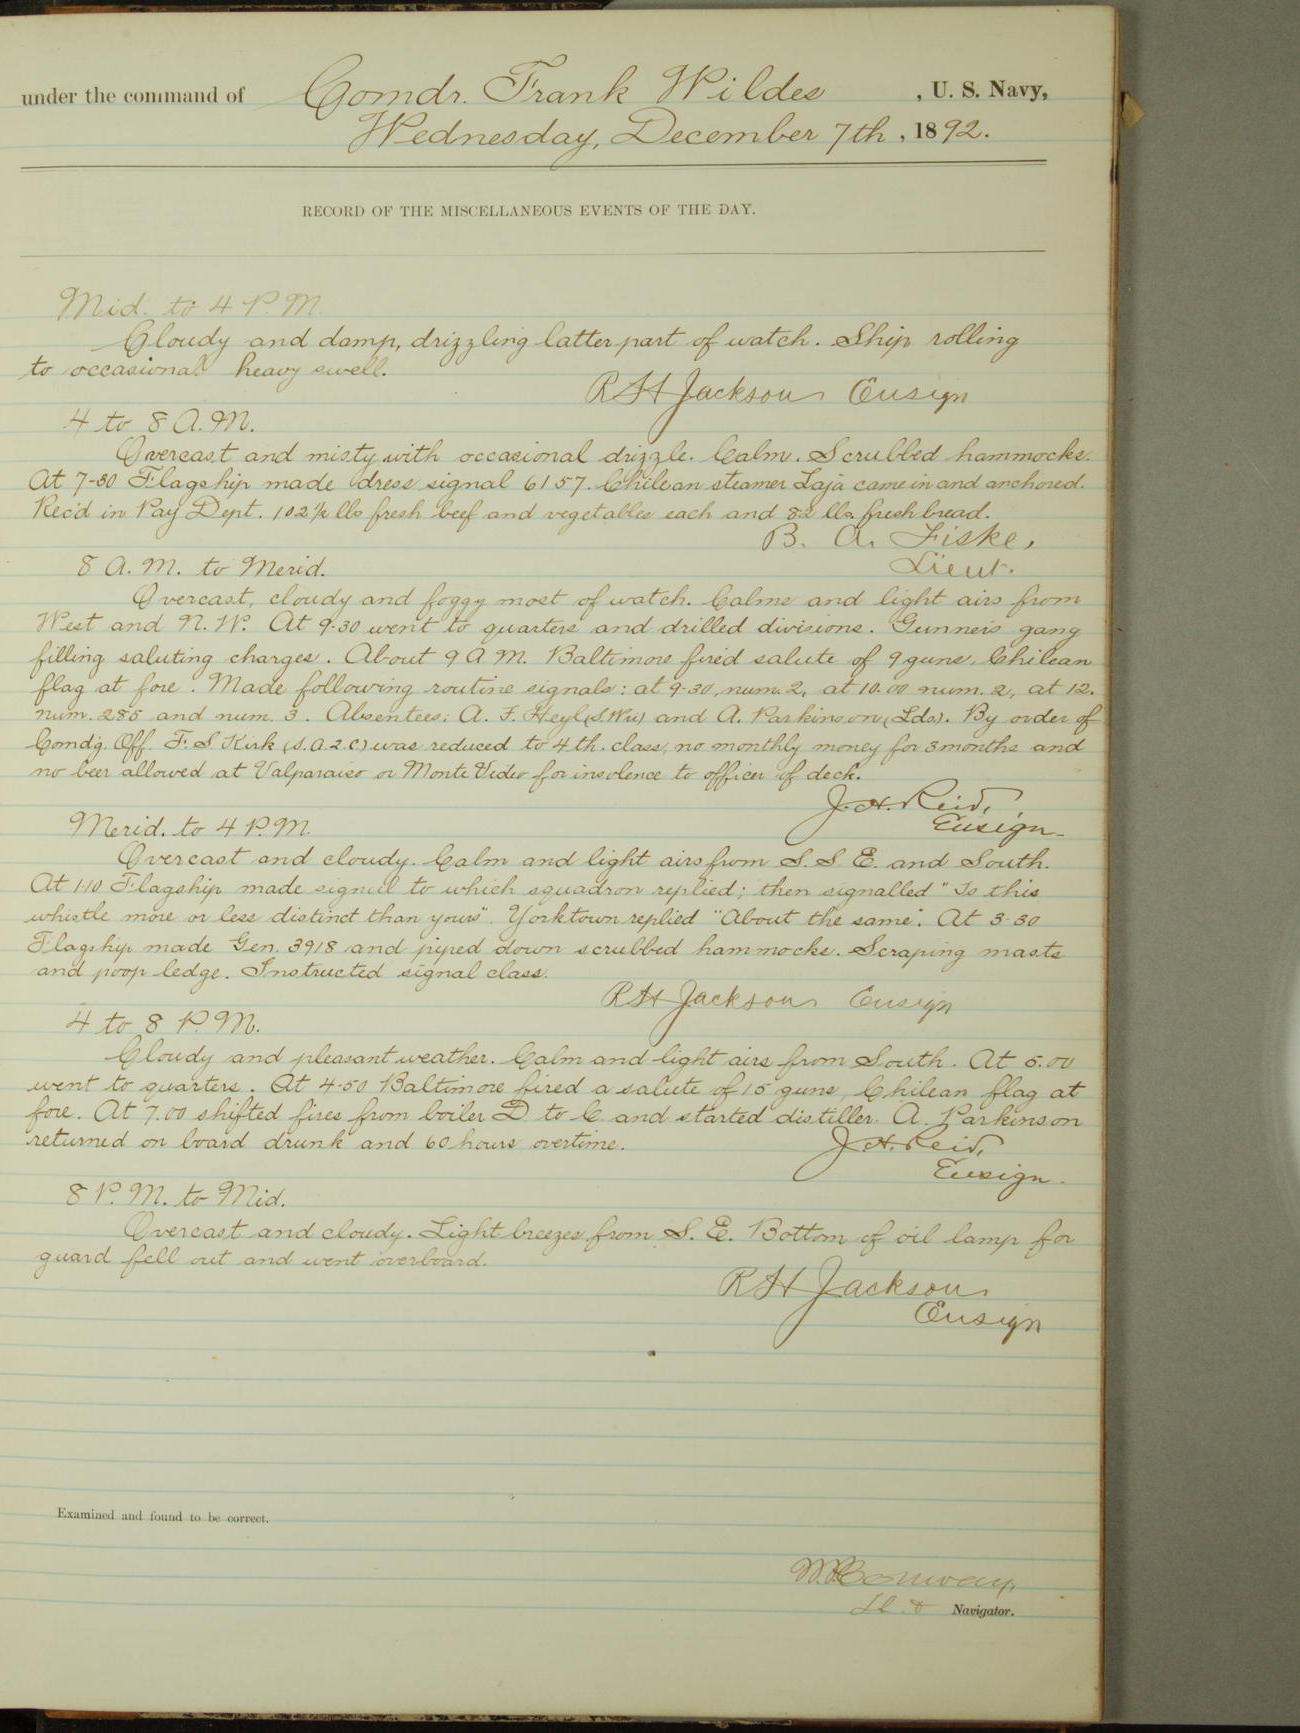 under the command of Comdr. Frank Wildes, U. S. Navy,
Wednesday, December 7th, 1892.
RECORD OF THE MISCELLANEOUS EVENTS OF THE DAY.
Mid. to 4 P. M.
Cloudy and damp, drizzling latter part of watch. Ship rolling
to occasional heavy swell.
R H Jackson Ensign
4 to 8 A. M.
Overcast and misty with occasional drizzle. Calm. Scrubbed hammocks.
At 7-30 Flagship made dress signal 6157. Chilean steamer Laja came in and anchored.
Rec'd in Pay Dept. 102½ lbs fresh beef and vegetables each and 82 lbs. fresh bread.
B. A. Fiske,
Lieut.
8 A. M. to Merid.
Overcast, cloudy and foggy most of watch. Calms and light airs from
West and N. W. At 9-30 went to quarters and drilled divisions. Gunner's gang
filling saluting charges. About 9 A M. Baltimore fired salute of 9 guns, Chilean
flag at fore. Made following routine signals: at 9-30, num. 2, at 10.00 num. 2, at 12.
num. 285 and num. 3. Absentees: A. F. Heyl (S.Wr) and A. Parkinson (Lds). By order of
Comd'g. Off. F. S Kirk (S.A.2.C) was reduced to 4th. class, no monthly money for 3 months and
no beer allowed at Valparaiso or Monte Video for insolence to officer of deck.
J. H. Reid,
Ensign
Merid. to 4 P. M.
Overcast and cloudy. Calm and light airs from S. S E. and South.
At 1-10 Flagship made signal to which squadron replied; then signalled "Is this
whistle more or less distinct than yours". Yorktown replied "About the same". At 3-30
Flagship made Gen. 3918 and piped down scrubbed hammocks. Scraping masts
and poop ledge. Instructed signal class.
R H Jackson Ensign
4 to 8 P. M.
Cloudy and pleasant weather. Calm and light airs from South. At 5.00
went to quarters. At 4-50 Baltimore fired a salute of 15 guns, Chilean flag at
fore. At 7.00 shifted fires from boiler D to C and started distiller. A. Parkinson
returned on board drunk and 60 hours overtime.
J. H. Reid,
Ensign.
8 P. M. to Mid.
Overcast and cloudy. Light breezes from S. E. Bottom of oil lamp for
guard fell out and went overboard.
R H Jackson
Ensign
Examined and found to be correct.
Conway,
Navigator.